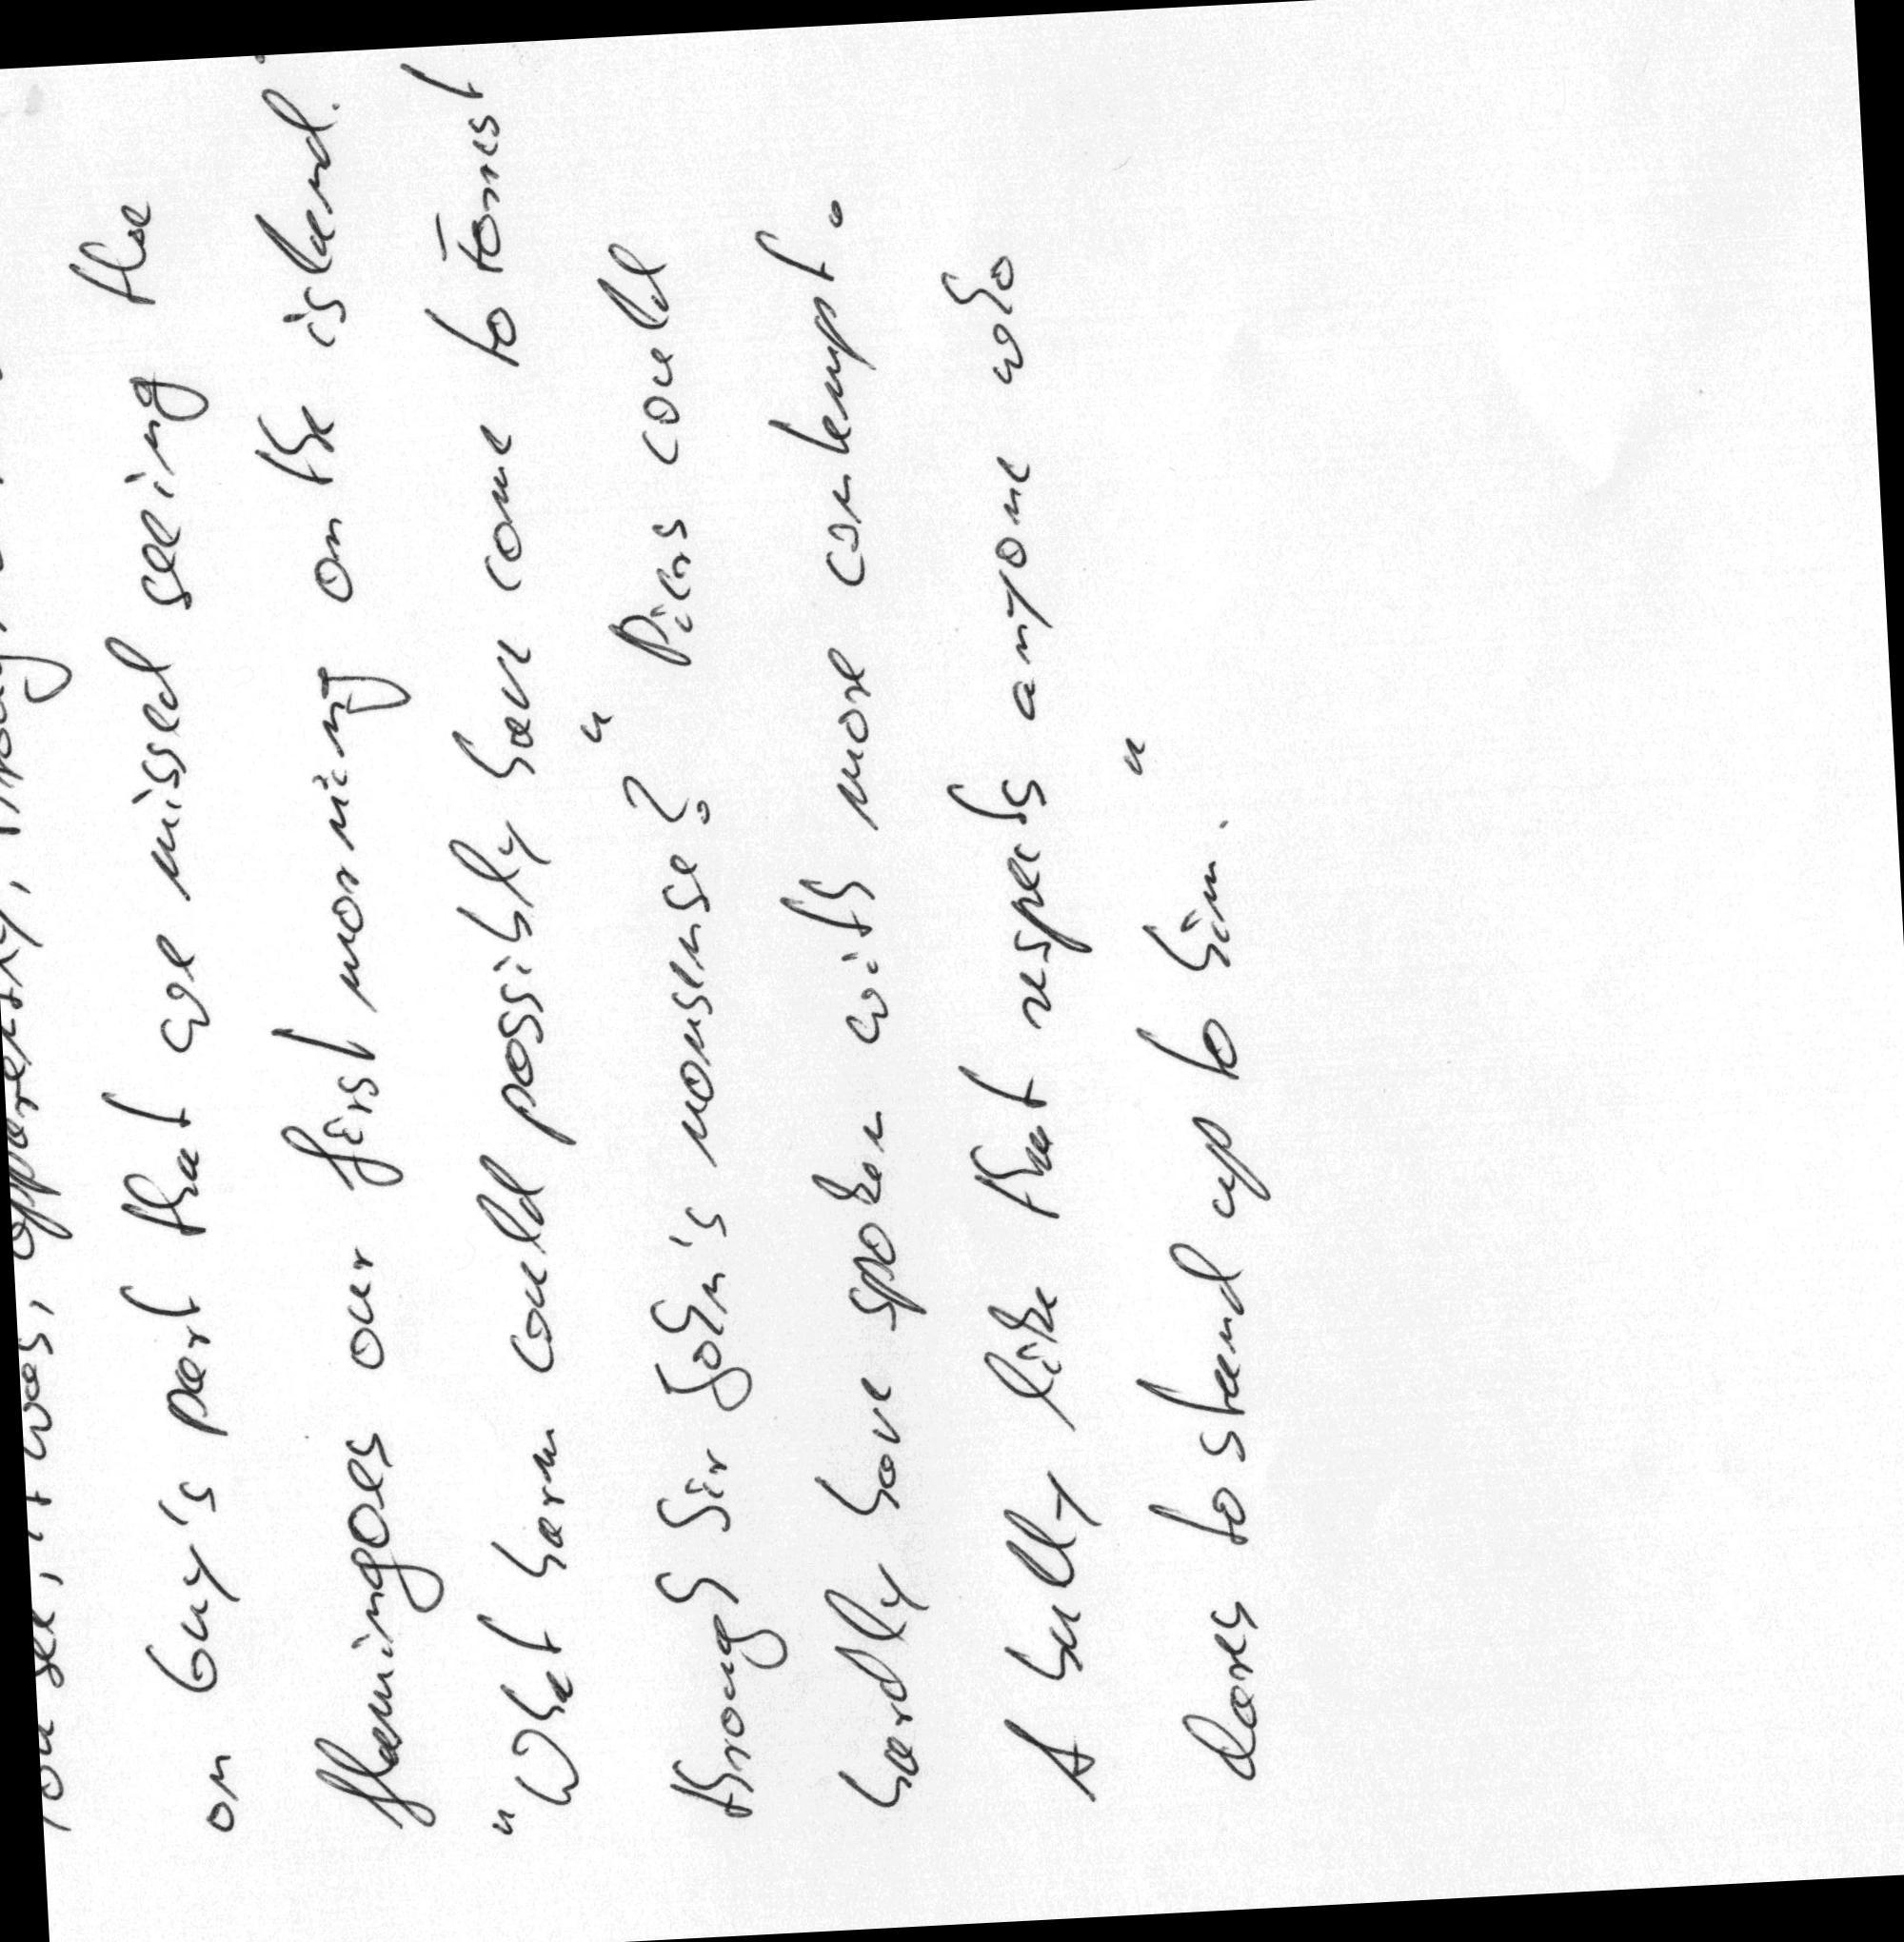 you see, it was, apparently,
on Guy's part that we missed seeing the
flamingoes our first morning on the island.
"What harm could possibly have come to
through Sir John's nonsense?" Piers could
hardly have spoken with more contempt.
A bully like that respects anyone who
dares to stand up to him."